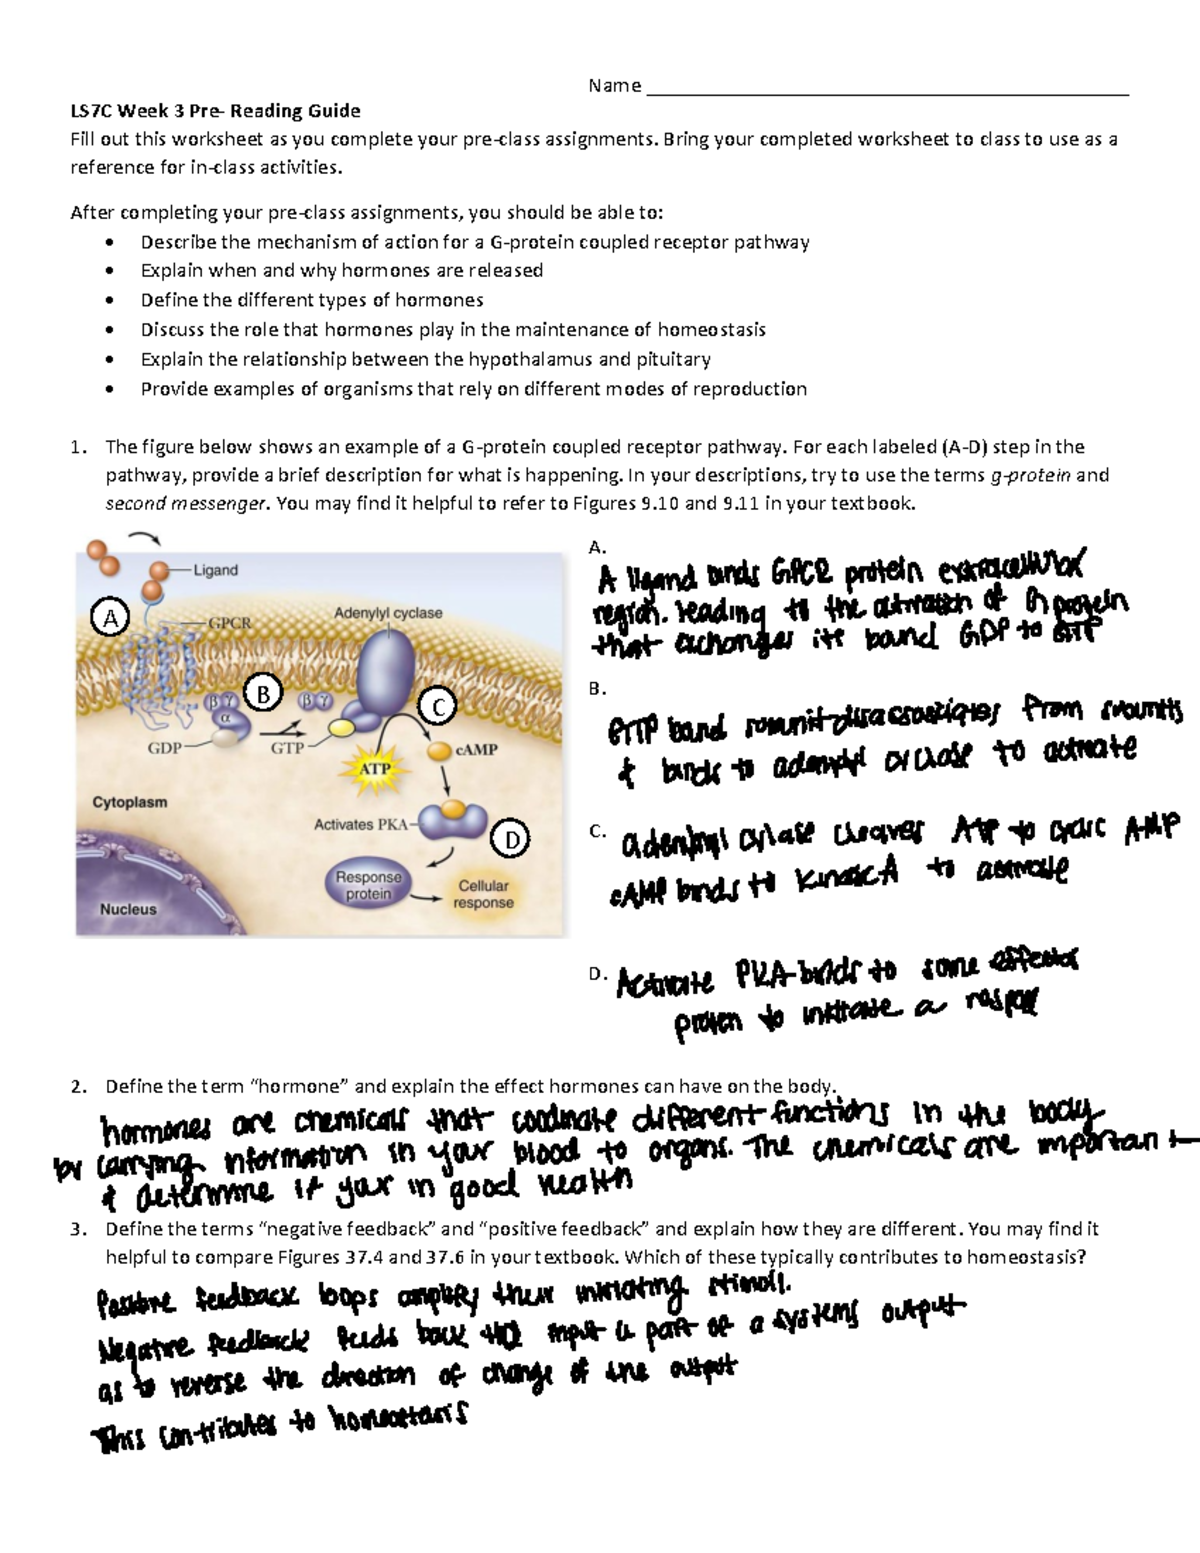 Name
LS7C Week 3 Pre- Reading Guide
Fill out this worksheet as you complete your pre-class assignments. Bring your completed worksheet to class to use as a
reference for in-class activities.
After completing your pre-class assignments, you should be able to:
• Describe the mechanism of action for a G-protein coupled receptor pathway
• Explain when and why hormones are released
• Define the different types of hormones
• Discuss the role that hormones play in the maintenance of homeostasis
• Explain the relationship between the hypothalamus and pituitary
• Provide examples of organisms that rely on different modes of reproduction
1. The figure below shows an example of a G-protein coupled receptor pathway. For each labeled (A-D) step in the
pathway, provide a brief description for what is happening. In your descriptions, try to use the terms g-protein and
second messenger. You may find it helpful to refer to Figures 9.10 and 9.11 in your textbook.
Ligand
A
GPCR
Adenylyl cyclase
β γ
B
β γ
C
α
GDP
GTP
ATP
cAMP
Cytoplasm
Activates PKA
D
Response
protein
Cellular
response
Nucleus
A.
A ligand binds GPCR protein extracellular
region. leading to the activation of G protein
that exchanges its bound GDP to GTP
B.
GTP bound from
& binds to adenylyl cyclase to activate
C. adenylyl cyclase cleaves ATP to cyclic AMP
cAMP binds to kinase A to activate
D. Activate PKA binds to some effector
protein to initiate a
2. Define the term “hormone” and explain the effect hormones can have on the body.
hormones are chemicals that coordinate different functions in the body
by carrying information in your blood to organs. The chemicals are important
& determine if your in good health
3. Define the terms “negative feedback” and “positive feedback” and explain how they are different. You may find it
helpful to compare Figures 37.4 and 37.6 in your textbook. Which of these typically contributes to homeostasis?
Positive feedback loops amplify their initiating stimoli.
Negative feedback feeds back input a part of a systems output
as to reverse the direction of change of the output
This contributes to homeostasis